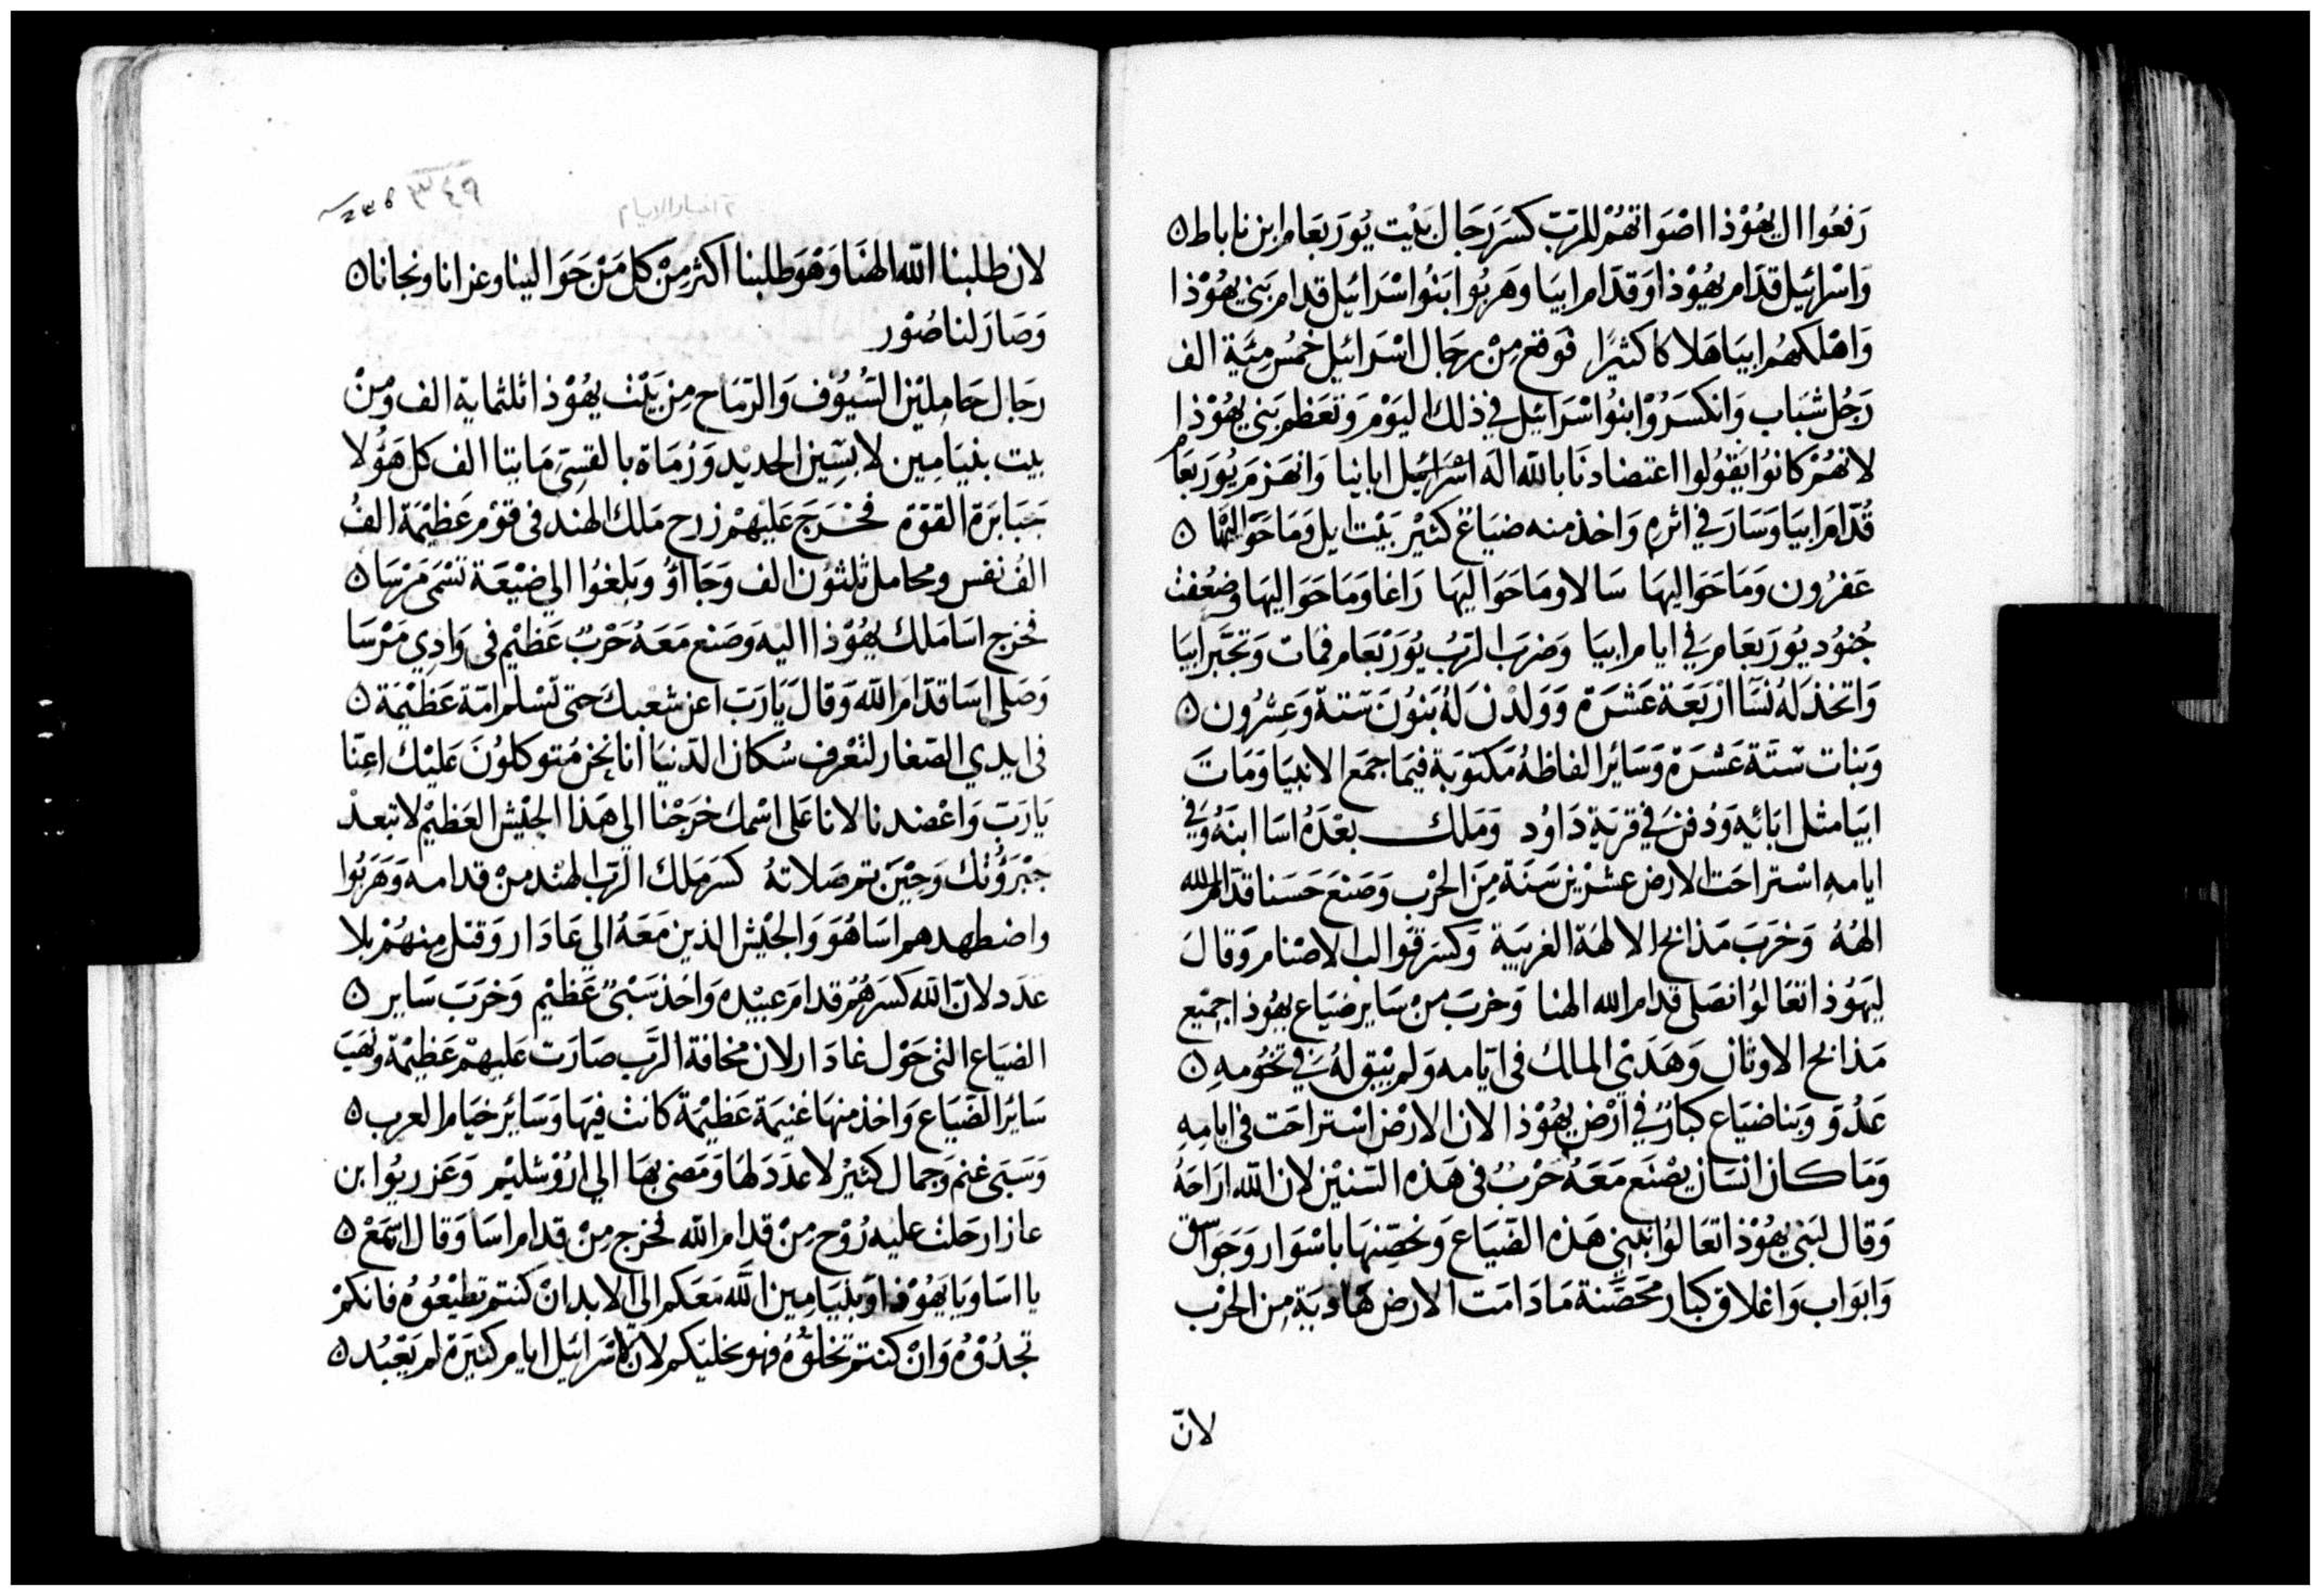 رَفعُوا ال يهُوْذا اصْوَاتهُمْ للرّبّ كسَرَ رجَال بَيْت يُورَبعَام ابن ناباط
وَاسْرائيل قدَّام يهُوْذا وَقدَّام ابيَا وَهَربُوا بَنُوا اسْرَائيل قدام بَني يهُوْذا
وَاهْلكهُم ابيَا هَلاكا كثيرًا فوَقع مِنْ رجَال اسْرَائيل خمْسُ مِئَية الف
رَجُل شبَاب وَانكسَرُوْا بنُوا اسْرَائيل في ذلك اليَوْم وَتعَظم بَني يهُوْذا
لانهُمْ كانوُا يَقوُلوا اعتضادنَا بالله الَه اسْرَائيل ابائنا وَانهَزمَ يُورَبعَام
قُدّامَ ابيَا وَسَارَ في اثره وَاخذ منه ضيَاع كثيْر بَيْت ايل وَمَا حَوَاليْهَا
عَفرُون وَمَا حَوَاليهَا سَالا ومَا حَوَاليهَا رَاغا وَمَا حَوَاليهَا وضعُفت
جُنوُد يُورَبعَام في ايام ابيَا وَضرَب الرّبّ يُوَرْبعَام فمَات وَتجَّبر ابيَا
وَاتخذ لهُ نسَآ ارْبَعَة عَشَرَة وَوَلدْن لهُ بَنوُنَ ستة وَعِشرُون
وَبنات ستَة عَشَرَة وَسَائر الفاظهُ مَكتوَبة فيمَا جمَع الانبيَا وَمَاتَ
ابيَا مثل ابَائهِ وَدُفنَ في قريَة دَاوُد وَمَلك بعْدَهُ اسَا ابنهُ وَفي
ايامهِ اسْتراحَت الارض عشرْين سَنَة مِنَ الحرْب وَصَنعَ حَسَنا قدّام الله
الههُ وَخرَبَ مَذابح الالهَة الغريبَة وَكسَرَ قوَالب الاصْنام وَقالَ
ليَهوُذا تعَالوُا نصَلى قدام الله الهنا وَخربَ منْ سَاير ضيَاع يهوُذا جميْع
مَذابح الاوثان وَهَدَىْ المالك في ايّامه وَلم يبْق لهُ في تخوُمهِ
عَدُوَ وَبنا ضيَاع كبارٌ في ارْض يهُوْذا لان الارْض اسْتراحَت في ايامِهِ
وَمَا كان انسَان يصْنَع مَعَهُ حَرْبٌ في هَذه السّنيْن لان اللّه ارَاحَهُ
وَقال لبَني يهُوْذا تعَالوُا نبني هَذه الضّيَاع وَنحصّنهَا باسْوَار وَجَوَاسق
وَابوَاب وَاغلاق كبار محَصَّنة مَا دَامَت الارض هَاديَة مِن الحرْب
لانّ
٢ اخبار الايام
لان طلبنا اللّه الهنَا وَهوَ طلبنا اكثر مِنْ كل مَنْ حَوَالينا وعزانا ونجانا
وَصَارَ لنا صُوْر
رجَال حَامِليْن السُّيُوْف وَالرّمَاح مِن بَيْت يهُوْذا ثلثماية الف وَمِنْ
بيت بنيَامِين لابسِين الحدْيد وَرُمَاة بالقسِيّ مَايتا الف كل هَؤُلا
جَبَابرَة القوّة فخرَجَ عَليْهمْ زرح مَلك الهند في قوْم عَظيْمَة الفُ
الفُ نفس ومحامل ثلثوُن الف وَجَاؤُا وَبلغوُا الي ضيْعَة تسْمَى مَرْسَا
فخرج اسَا مَلك يهُوْذا اليْه وَصَنع مَعَهُ حَرْبٌ عَظيْم في وَادِي مَرْسَا
وَصَلى اسَا قدّامَ اللّه وَقال يَارَبّ اعن شعْبكَ حَتى تسْلم امّة عَظيْمَة
في ايدي الصّغار لتعْرف سُكان الدّنيَا انا نحْن مُتوَكلوُنَ عَليْك اعِنّا
يَارَبّ وَاعْضدنا لانا عَلى اسْمك خرَجْنا الي هَذا الجيْش العَظيْم لا تبعدْ
جبْرَوُتك وَحِيْنَ تم صَلاتهُ كسَرَ مَلك الرّب الهنْد منْ قدامه وَهَرَبُوا
واضطهدهم اسَا هُوَ وَالجيْش الذين مَعَهُ الي عَادَار وَقتل مِنهُمْ بلا
عدَد لانّ اللّه كسَرهُمْ قدامَ عبيْده وَاخذ سَبْيٌ عَظيْم وَخرَبَ سَاير
الضيَاع التي حَوْل غادَار لان مخافة الرَّب صَارَت عَليهمْ عَظيْمة ونهَبَ
سَائر الضّيَاع وَاخذ منهَا غنيمَة عَظيْمَة كانت فيهَا وَسَائر خيَام العرب
وَسَبَى غنم وَجمال كثيْر لا عدَدَ لهَا وَمَضى بهَا الي ارُوْشليْم وَعَزريُوا ابن
عازار حَلت عليه رُوْح مِنْ قدام اللّه فخرج مِنْ قدام اسَا وَقال اسْمَعْ
يا اسَا وَيا يهُوْذا وَبنيَامِين اللَّه مَعَكم الي الابد انْ كنتم تطيْعوُهُ فانكمْ
تجدُوْهُ وَانْ كنتم تخلوُهُ فهو يخليّكم لان لاسْرَائيل ايام كثيَرَة لم يَعْبُد